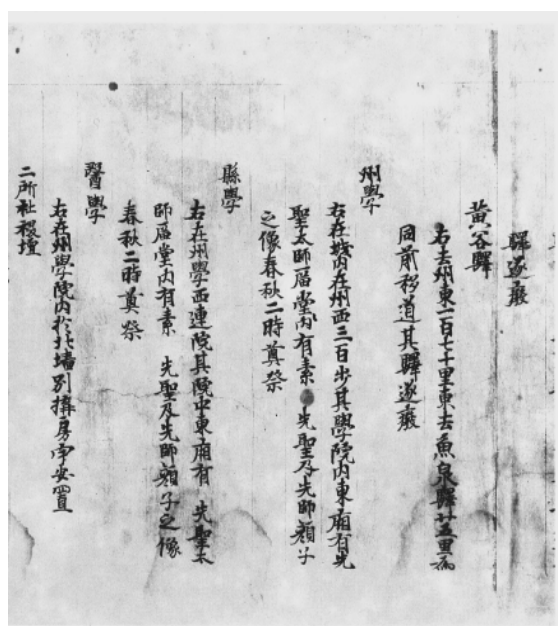 驛遂廢
黃谷驛
右去州東一百七十里東去魚泉驛廿五里爲
同前移道其驛遂廢
州學
右在城內在州西三百步其學院內東廂有先
聖太師廟堂內有素先聖及先師顏子
之像春秋二時奠祭
縣學
右在州學西連院其院中東廂有先聖太
師廟堂內有素先聖及先師顏子之像
春秋二時奠祭
醫學
右在州學院內於北墻別構房宇安置
二所社稷壇